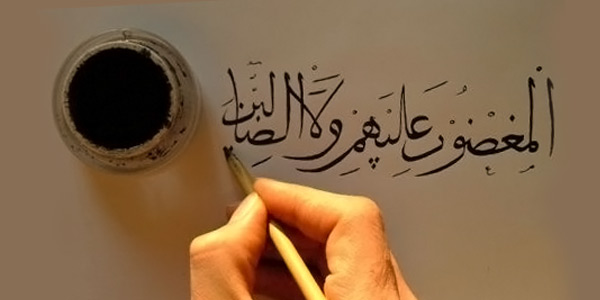 المغضوب عليهم ولا الضالين